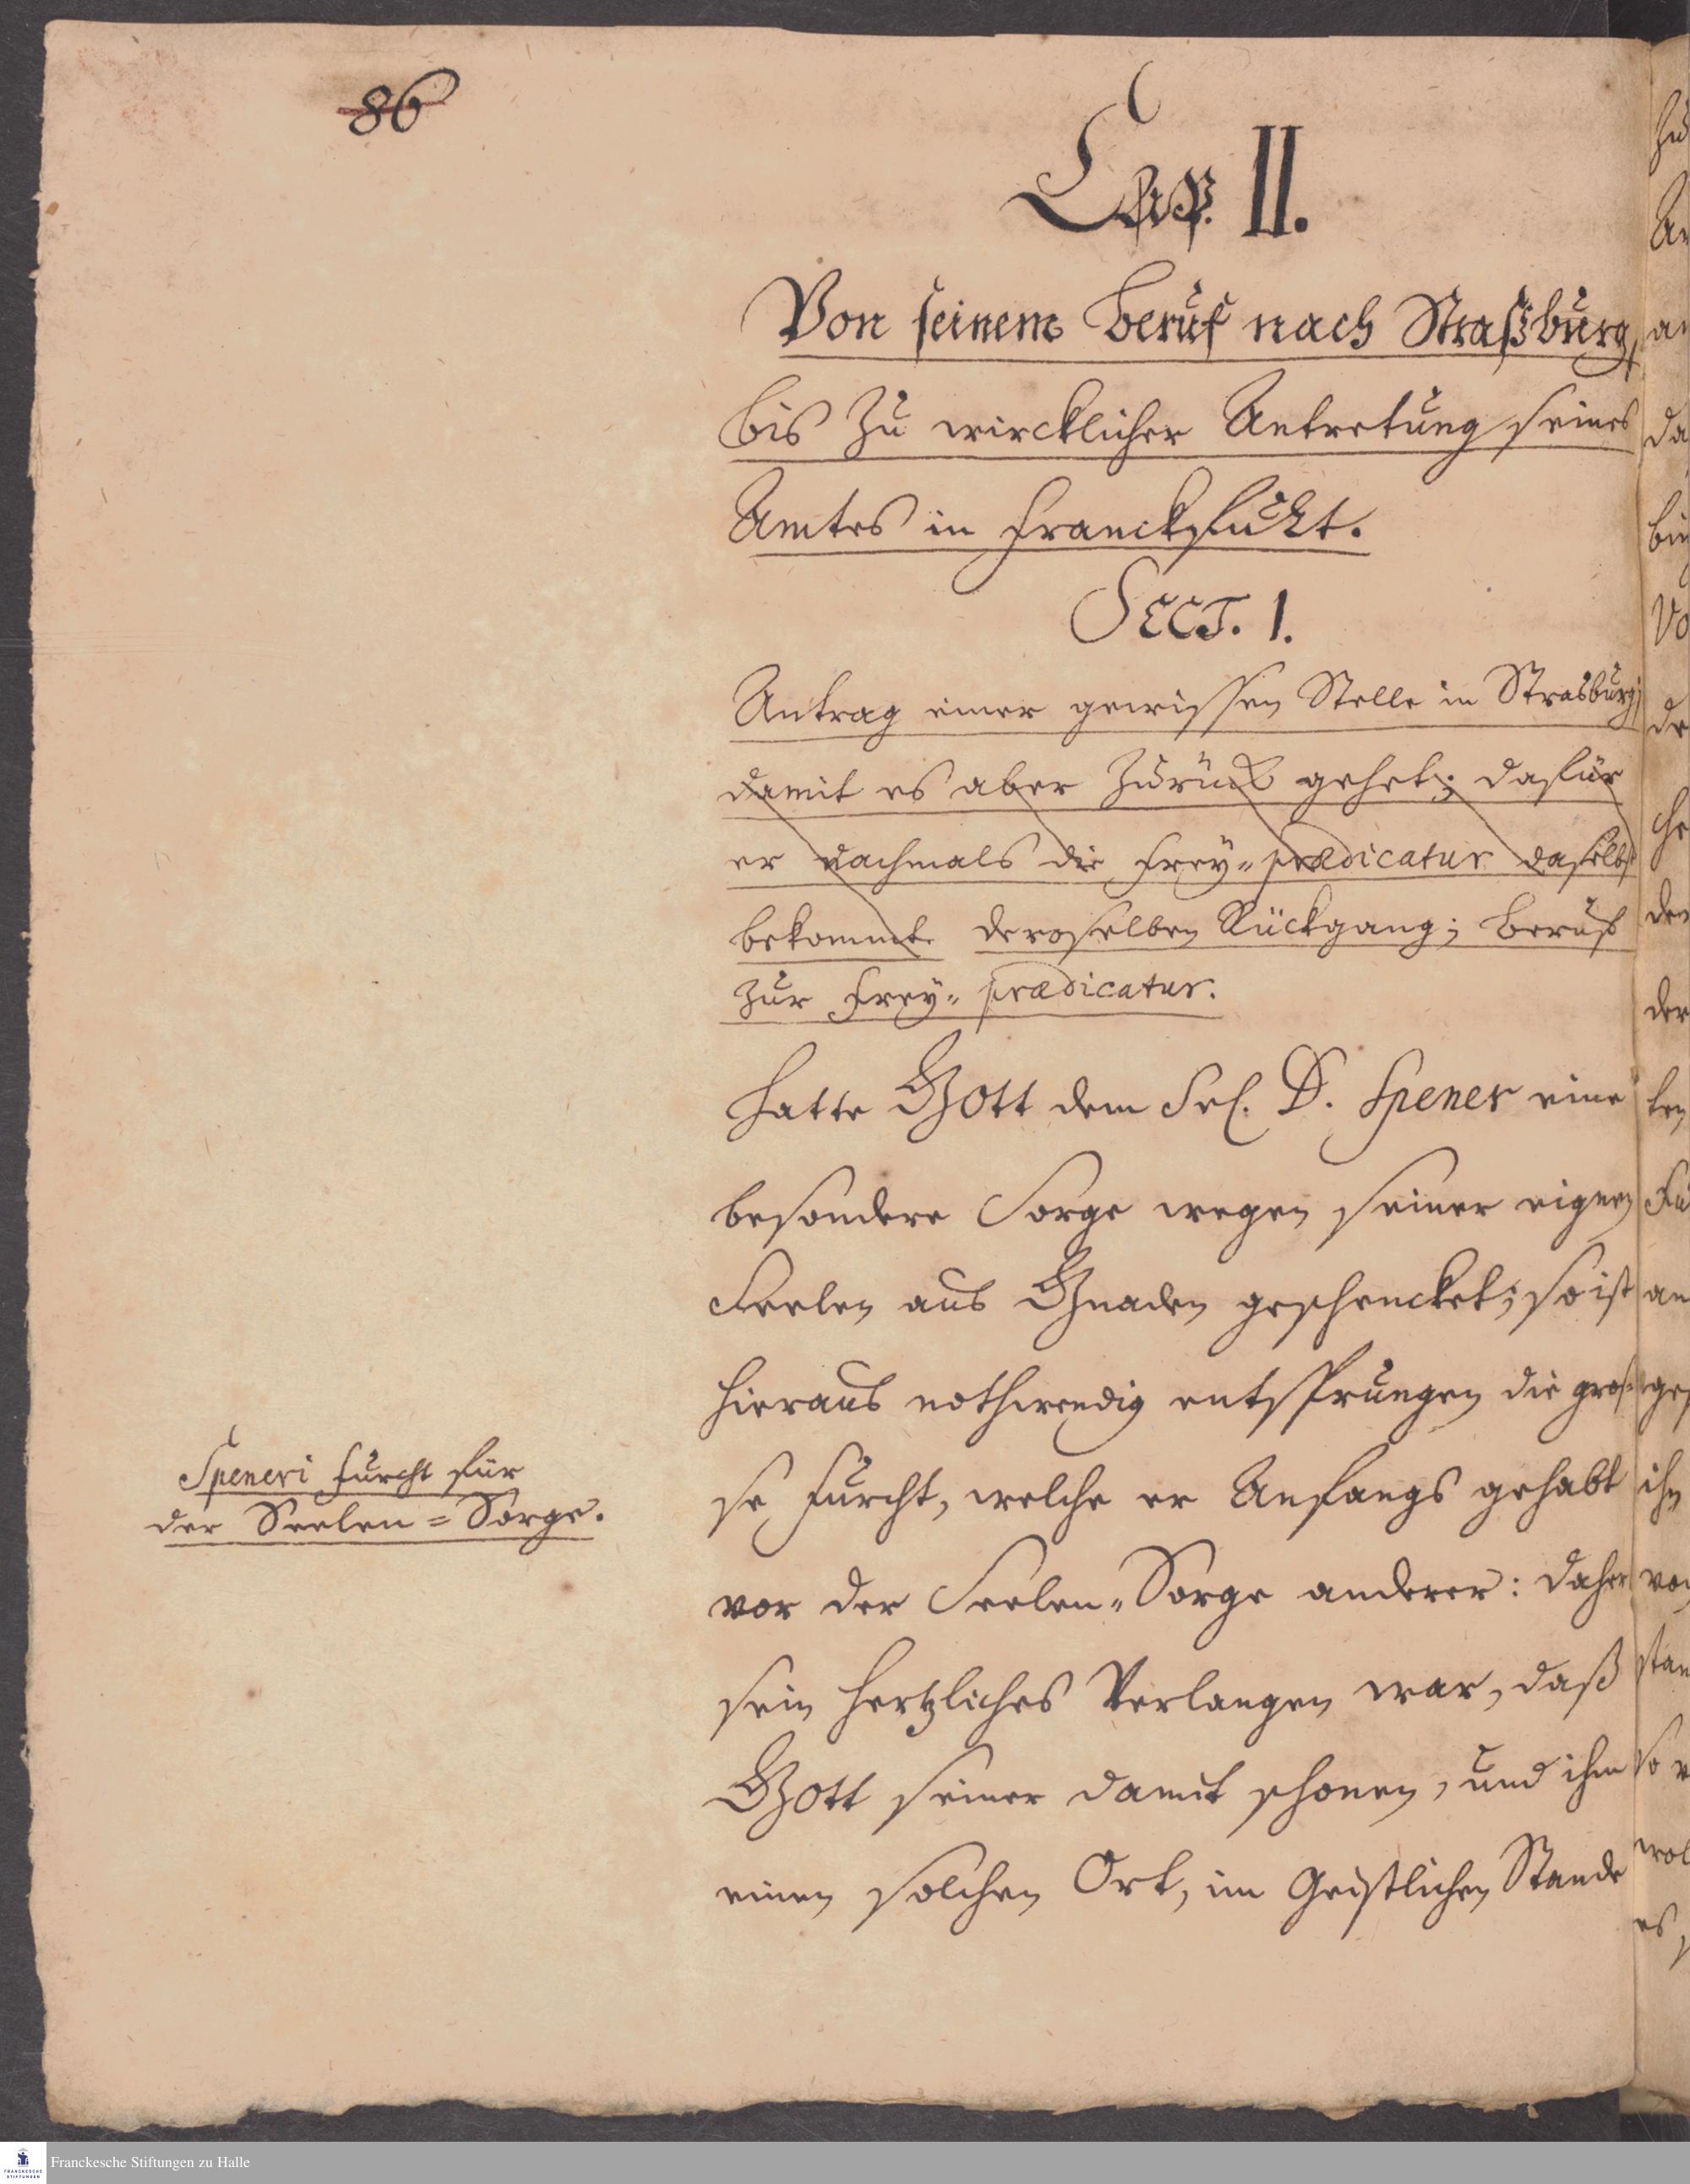 86
Cap. II.
Von seinem Beruf nach Straßburg,
bis zu wircklicher Antretung seines
Amtes in Franckfurt.
SECT. I.
Antrag einer gewissen Stelle in Strasburg;
damit es aber zurück gehet; dafür
er nachmals die Frey-prædicatur daselbst
bekommt. deroselben Rückgang; Beruf
zur Frey-prædicatur.
Hatte Gott dem Sel. D. Spener eine
besondere Sorge wegen seiner eignen
Seelen aus Gnaden geschencket; so ist
hieraus nothwendig entsprungen die gros-
se Furcht, welche er Anfangs gehabt
vor der Seelen-Sorge anderer: daher
sein hertzliches Verlangen war, daß
Gott seiner damit schonen, und ihm
einen solchen Ort, im Geistlichen Stande
Speneri Furcht für
der Seelen-Sorge.
FRANCKESCHE
STIFTUNGEN
Franckesche Stiftungen zu Halle